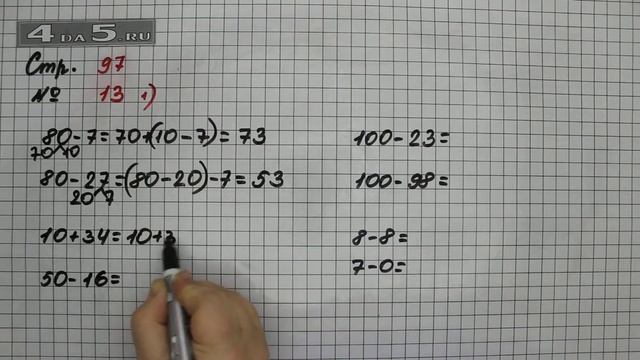 4 DA 5.RU
Стр. 97
№ 13 1)
80-7=70+(10-7)=73
70 10
80-27=(80-20)-7=53
20 7
10+34=10+3
50-16=
100-23=
100-98=
8-8=
7-0=